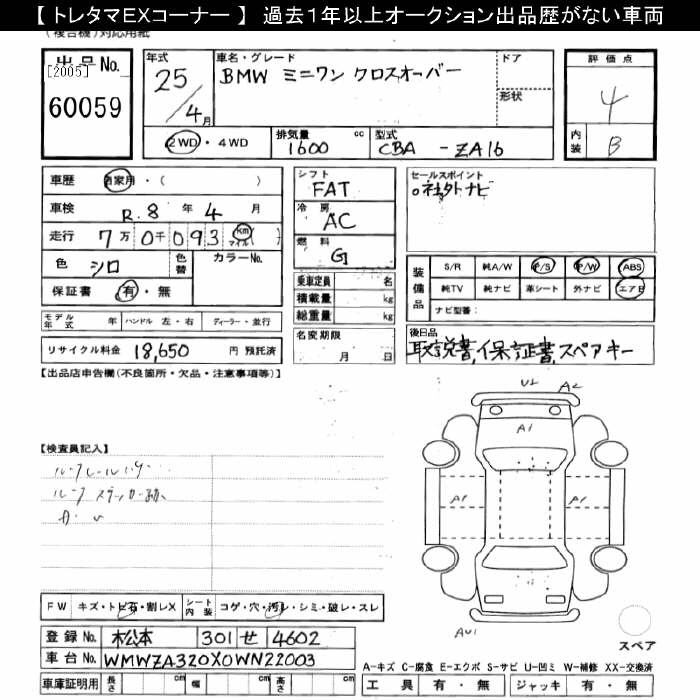 【 トレタマEXコーナー 】 過去1年以上オークション出品歴がない車両
(複合機)対応用紙
出品 No.
[2005]
60059
年式
25/4月
車名・グレード
BMW ミニワン クロスオーバー
ドア
形状
評価点
4
内装
B
2WD・4WD
排気量 cc
1600
型式
CBA - ZA16
車歴 自家用・( )
車検 R.8 年 4 月
走行 7万0千093 km マイル ( )
色 シロ 色替 カラーNo.
保証書 有・無
シフト
FAT
冷房
AC
燃料
G
乗車定員 名
積載量 kg
総重量 kg
セールスポイント
○社外ナビ
装備品
S/R 純A/W P/S P/W ABS
純TV 純ナビ 革シート 外ナビ エアB
ナビ型番:
モデル年式 年 ハンドル 左・右 ディーラー・並行
名変期限
月 日
後日品
取説書,保証書,スペアキー
リサイクル料金 18,650 円 預託済
【出品店申告欄(不良箇所・欠品・注意事項等)】
【検査員記入】
U2 A2
A1
A1 A1
AU1
スペア
FW キズ・トビ石・割レX シート内装 コゲ・穴・汚レ・シミ・破レ・スレ
登録 No. 松本 301 せ 4602
車台 No. WMWZA320X0WN22003
車庫証明用 長さ cm 幅 cm 高さ cm
A-キズ C-腐食 E-エクボ S-サビ U-凹ミ W-補修 XX-交換済
工具 有・無 ジャッキ 有・無